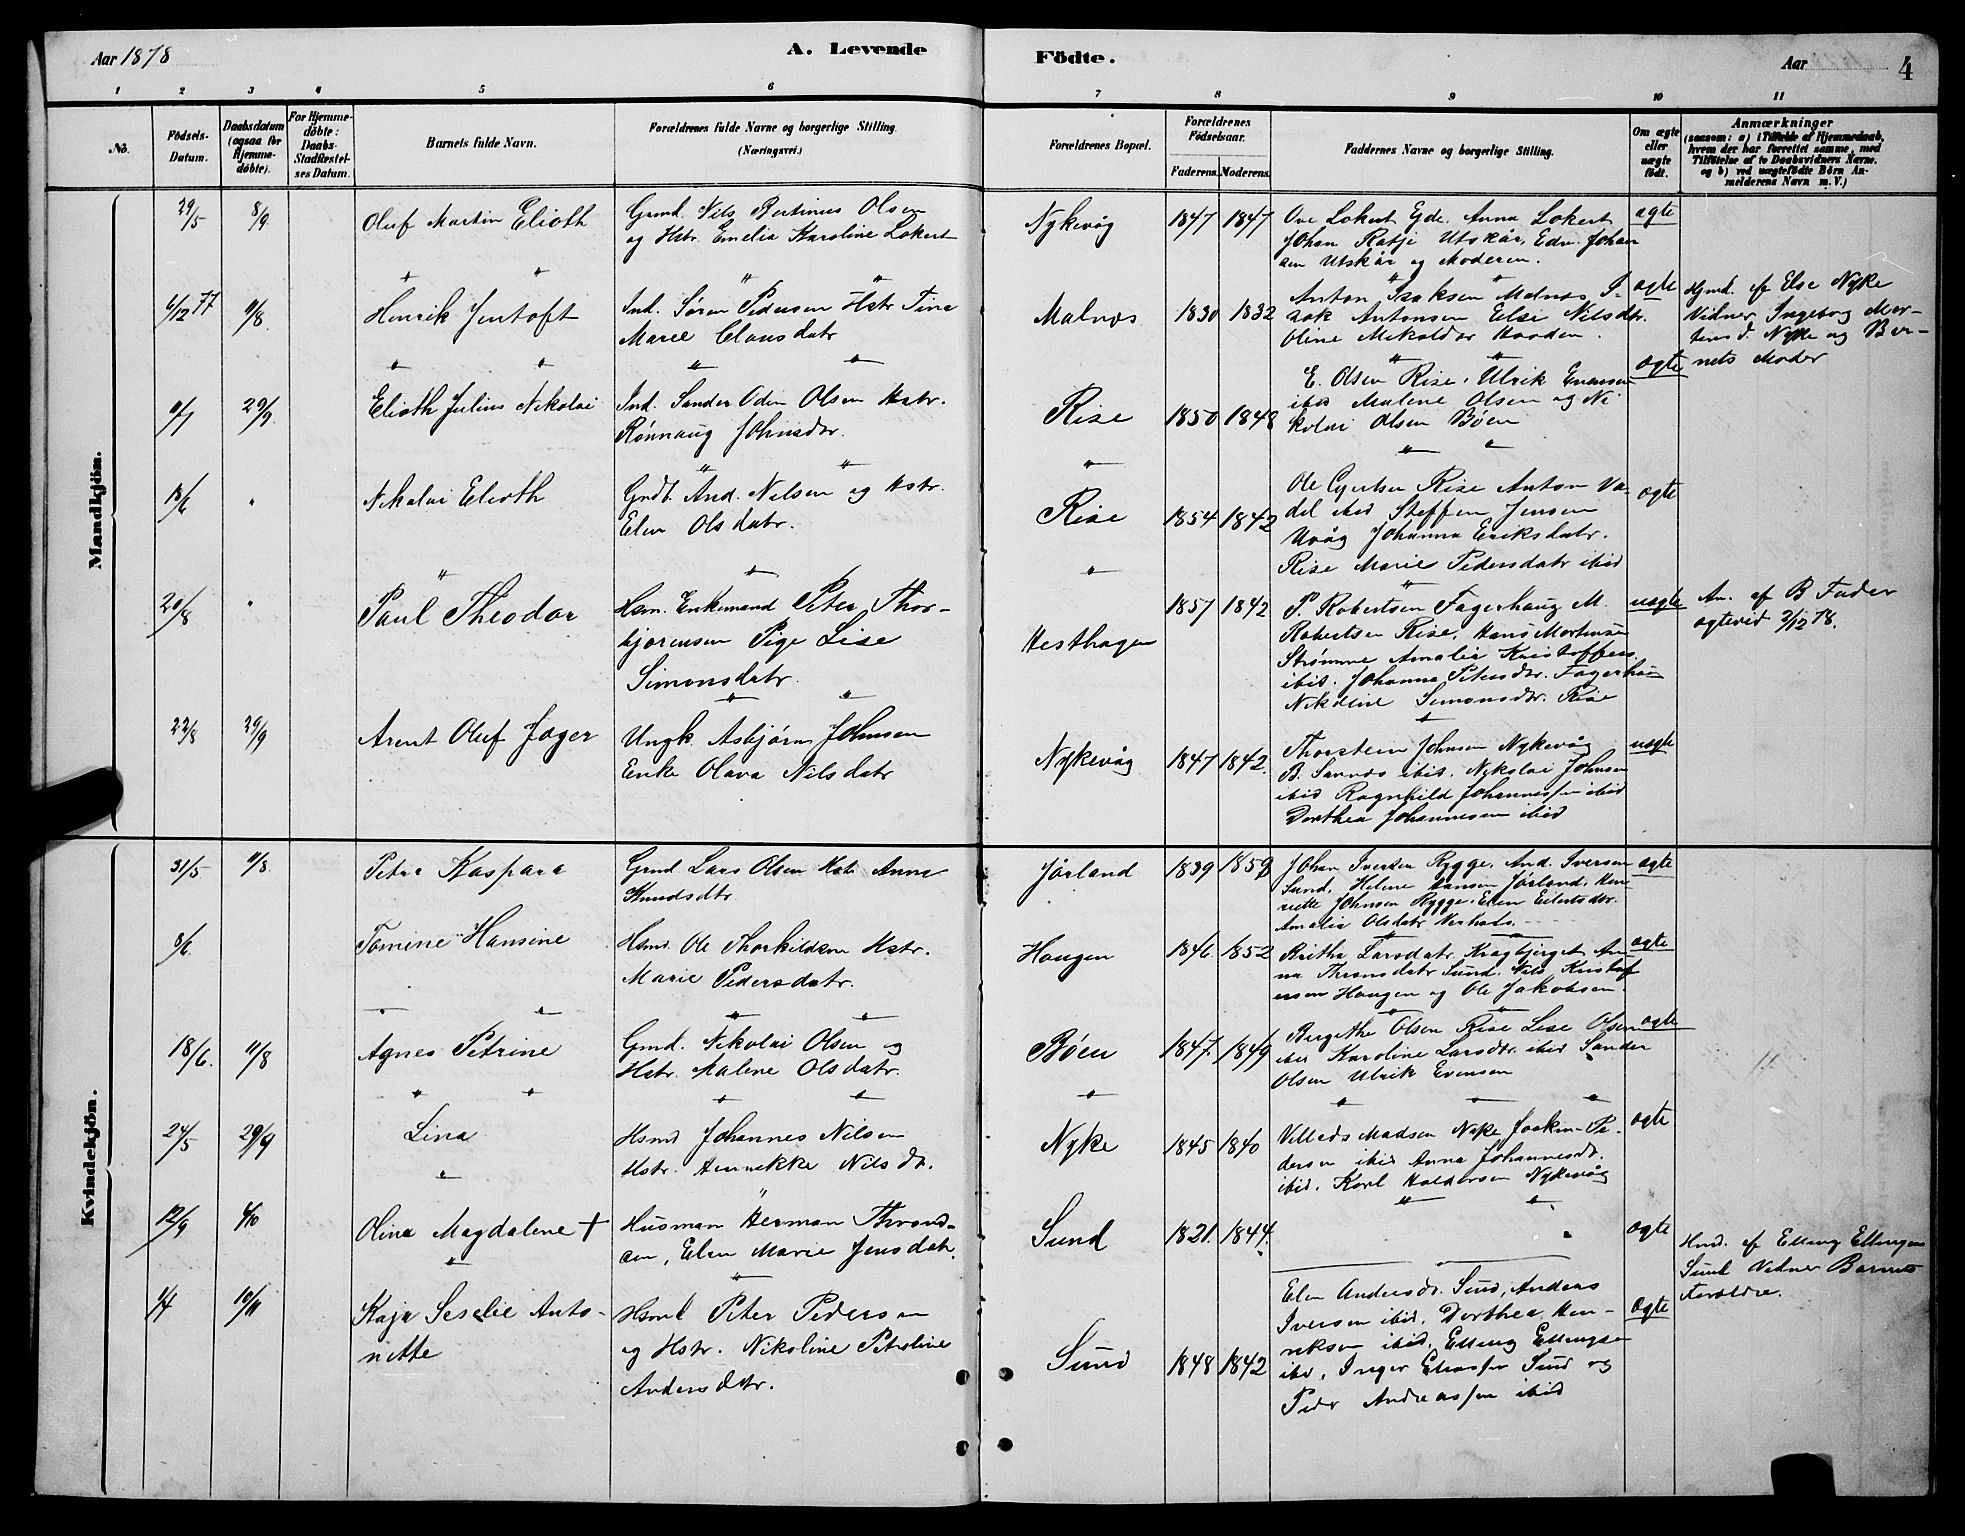 Aar 1878
A. Levende
Födte.
Aar
4
1 2 3 4 5 6 7 8 9 10 11
No.
Födsels-
Datum.
Daabsdatum
(ogsaa for
Hjemme-
döbte).
For Hjemme-
döbte:
Daabs-
Stadfæstel-
ses Datum.
Barnets fulde Navn.
Forældrenes fulde Navne og borgerlige Stilling.
(Næringsvei.)
Forældrenes Bopæl.
Forældrenes
Födselsaar.
Faderens. Moderens.
Faddernes Navne og borgerlige Stilling.
Om ægte
eller
uægte
födt.
Anmærkninger
(saasom: a) i Tilfælde af Hjemmedaab,
hvem der har forrettet samme, med
Tilföielse af to Daabsvidners Navne.
og b) ved uægtefödte Börn An-
melderens Navn m. V.)
Mandkjön.
29/5 8/9 Oluf Martin Elioth
Grmd. Nils Bertinius Olsen
og Hstr. Emelia Karoline Lokert
Nykevåg 1847 1847
Ove Lokert Eide. Anna Lokert
Johan Ratje Utskår, Edv. Johan
sen Utskår og Moderen.
ægte
6/12 77 11/8 Henrik Jentoft
Ind. Sören Pedersen Hstr Tina
Marie Clausdatr
Malnæs 1830 1832
Anton Isaksen Malnæs I-
sak Antonsen Else Nilsdtr.
Oline Mikaldtr Hooden.
ægte
Hjmd. af Else Nyke
Vidner Ingeborg Mor-
tensd. Nyke og Bar-
nets Moder
11/7 29/9 Elioth Julius Nikolai
Ind. Sander Odin Olsen Hstr.
Rønnaug Johnsdtr.
Rise 1850 1848
E. Olsen Rise, Ulrik Evensen
ibid Malene Olsen og Ni
kolai Olsen Bøen
ægte
18/6 " Nikolai Elioth
Grdb. And. Nilsen og Hstr.
Elen Olsdatr.
Rise 1854 1842
Ole Gjertsen Rise Anton Va-
del ibid Steffen Jensen
Uvåg Johanna Eriksdatr.
Rise Marie Pedersdatr ibid
ægte
20/8 " Paul Theodor
Hsm. Enkemand Peter Thor-
bjørensen Pige Lise
Simonsdatr.
Hesthagen 1857 1842
P. Robertsen Fagerhaug M.
Robertsen Rise, Hans Mortensen
Strømme Amalia Kristoffers
ibid. Johanna Petersdtr. Fagerhau
Nikoline Simonsdtr. Rise
uægte
An. af B Fader
ægtevid 2/12 78.
22/8 29/9 Arent Oluf Jager
Ungk. Asbjørn Johnsen
Enke Olava Nilsdatr
Nykevåg 1847 1842.
Thorstein Johnsen Nykevåg
B. Sannes ibid. Nykolai Johnsen
ibid Ragnhild Johannessen ibid
Dorthea Johannesen ibid
uægte
Kvindekjön.
31/5 11/8 Petra Kaspara
Grmd Lars Olsen Hstr Anne
Knudsdtr
Jørland 1839 1859
Johan Iversen Rygge. And. Iversen
Sund. Helene Hansen Jørland. Hen
riette Johnsen Rygge. Elen Eilertsdtr.
Amalia Olsdatr
ægte
3/6. Tomine Hansine
Hsmd. Ole Thorkildsen Hstr.
Marie Pedersdatr.
Haugen 1846. 1852
Birthe Larsdatr. Kragbjerget An-
na Thronsdatr Sund. Nils Kristof
ersen Haugen og Ole Jakobsen
ægte
18/6. 11/8 Agnes Petrine
Grmd. Nikolai Olsen og
Hstr. Malene Olsdatr.
Bøen 1847. 1849
Bergithe Olsen Rise Lise Olsen
ibid Karoline Larsdtr. ibid Sander
Olsen Ulrik Evensen
ægte
24/5 29/9 Lina
Hsmd Johannes Nilsen
Hstr. Annikke Nilsdt.
Nyke 1845 1840
Villads Madsen Nyke Joakim Pe-
dersen ibid Anna Johannesdt.
ibid. Karl Haldorsen Nykevåg
ægte
12/9 6/10 Olina Magdalene +
Husman Herman Thrond-
sen, Elen Marie Jensdatr.
Sund 1821. 1844.
ægte
Hmd. af Elling Ellingsen
Sund Vidner Barnets
Forældre.
1/4 10/11 Kaja Seselie Anto-
nette
Hsmd Peter Pedersen
og Hstr. Nikoline Petroline
Andersdtr.
Sund 1848 1842
Elen Andersdt. Sund, Anders
Iversen ibid, Dorthea Hen-
riksen ibid, Elling Ellingsen
ibid, Inger Eliassen Sund og
Peder Andreassen ibid
ægte